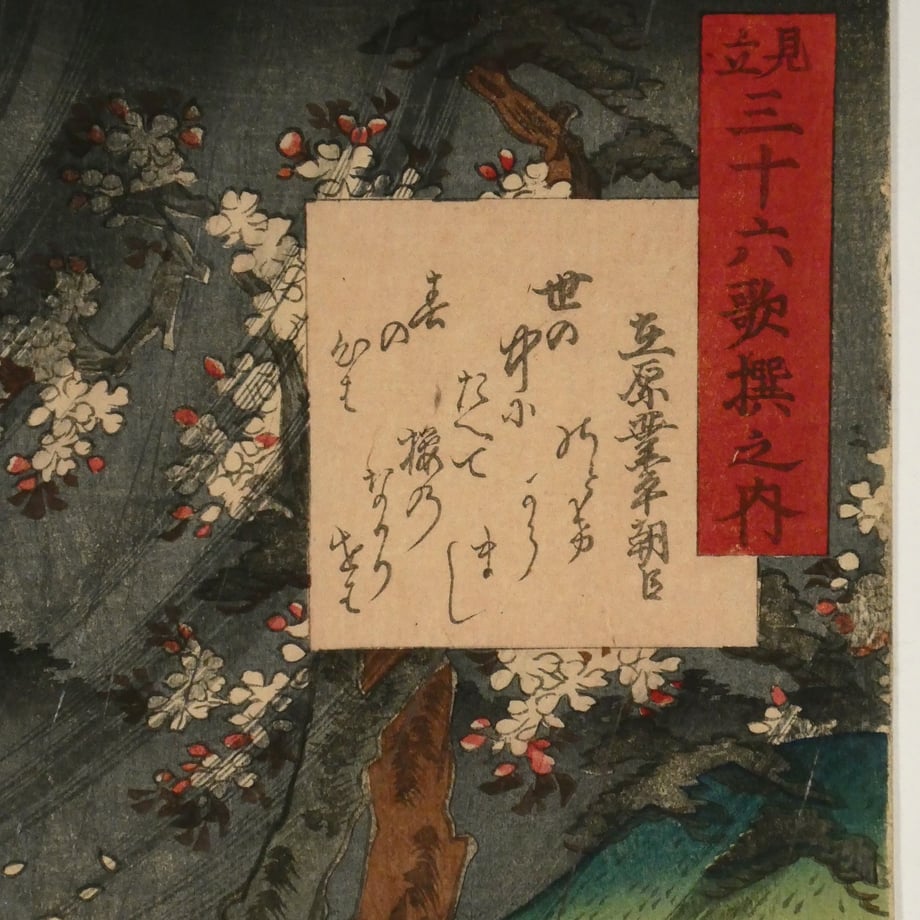 見立
三十六歌撰之内
在原業平朝臣
世の
中に
たえて
櫻の
なかり
せは
春
の
心は
のとけ
から
まし